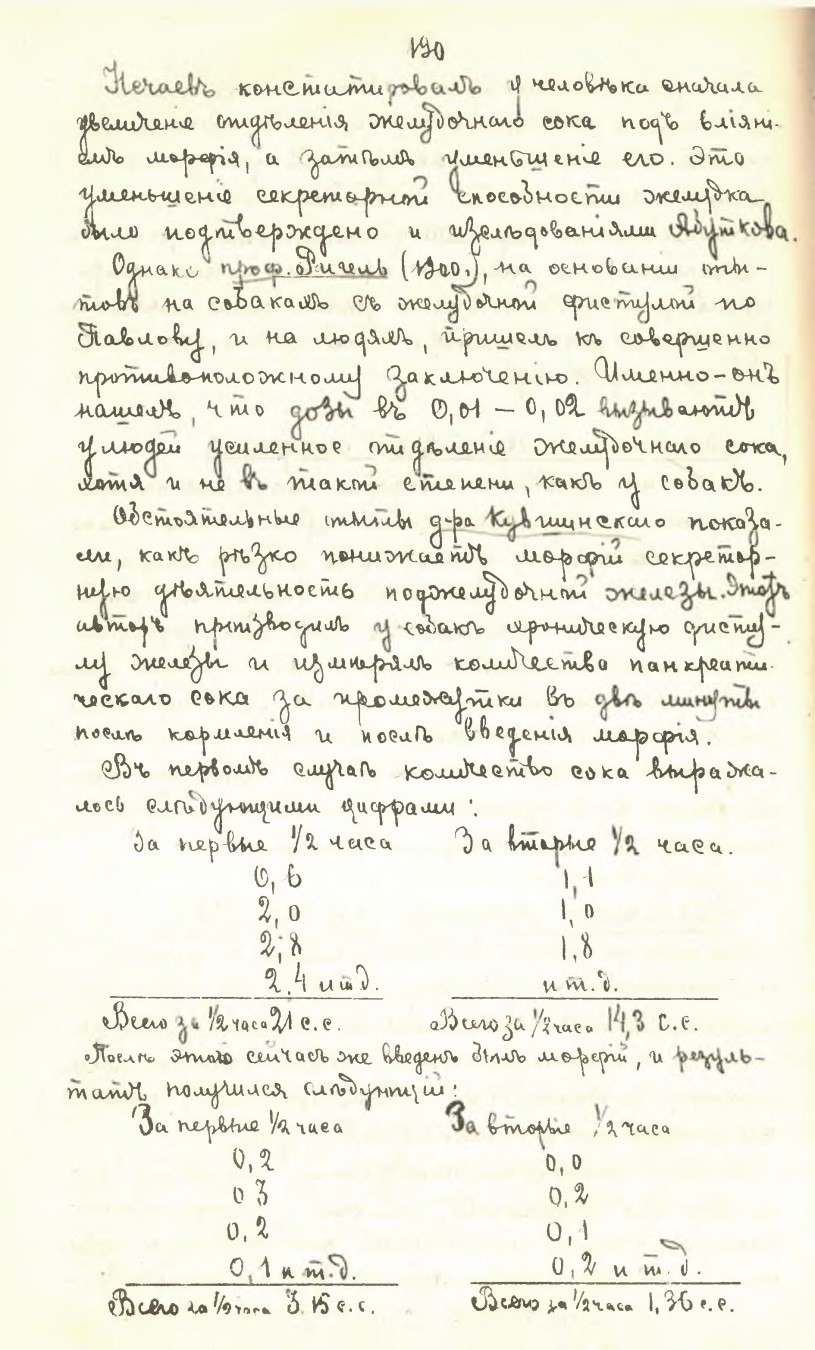 190
Нечаевъ констатировалъ у человѣка сначала
увеличенiе отдѣленiя желудочнаго сока подъ влiянi-
емъ морфiя, а затѣмъ уменьшенiе его. Это
уменьшенiе секреторной способности желудка
было подтверждено и изслѣдованiями Абуткова.
Однако проф. Ригель (1900.), на основанiи опы-
товъ на собакахъ съ желудочной фистулой по
Павлову, и на людяхъ, пришелъ къ совершенно
противоположному заключенiю. Именно-онъ
нашелъ, что дозы въ 0,01 – 0,02 вызываютъ
у людей усиленное отдѣленiе желудочнаго сока,
хотя и не въ такой степени, какъ у собакъ.
Обстоятельные опыты д-ра Кувшинскаго показа-
ли, какъ рѣзко понижаетъ морфiй секретор-
ную дѣятельность поджелудочной железы. Этотъ
авторъ производилъ у собакъ хроническую фисту-
лу железы и измѣрялъ количества панкреати-
ческаго сока за промежутки въ двѣ минуты
послѣ кормленiя и послѣ введенiя морфiя.
Въ первомъ случаѣ количество сока выража-
лось слѣдующими цифрами:
За первые 1/2 часа За вторые 1/2 часа.
0,6 1,1
2,0 1,0
2,8 1,8
2,4 и т.д. и т.д.
Всего за 1/2 часа 21 с.с. Всего за 1/2 часа 14,3 с.с.
Послѣ этого сейчасъ же введенъ былъ морфiй, и резуль-
татъ получился слѣдующiй:
За первые 1/2 часа За вторые 1/2 часа
0,2 0,0
0 3 0,2
0,2 0,1
0,1 и т.д. 0,2 и т.д.
Всего за 1/2 часа 3.15 с.с. Всего за 1/2 часа 1,36 с.с.